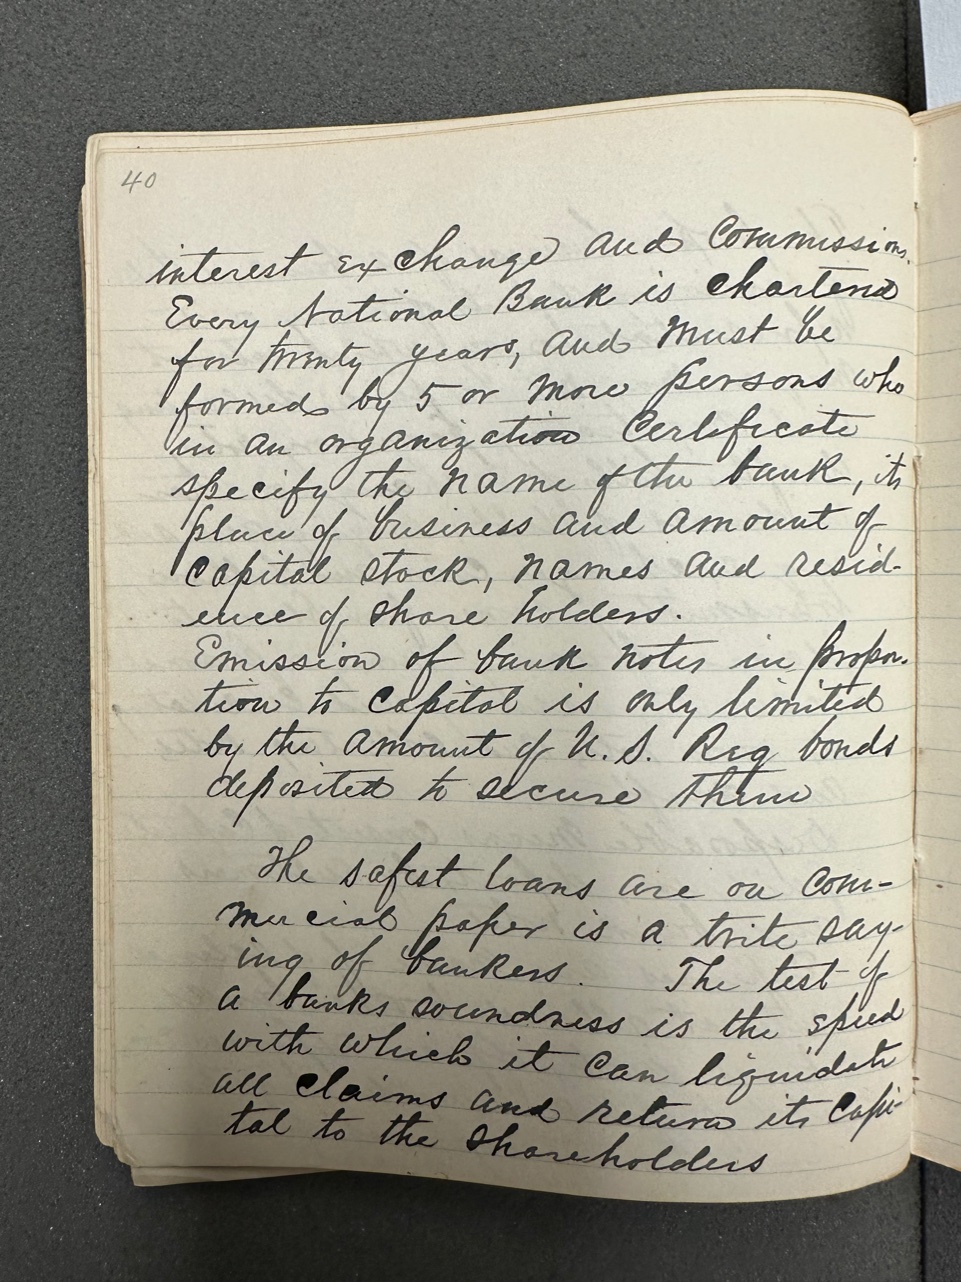 40
interest exchange and Commissions.
Every National Bank is chartered
for twenty years, and must be
formed by 5 or more persons who
in an organization Certificate
specify the name of the bank, its
place of business and amount of
capital stock, names and resid-
ence of share holders.
Emission of bank notes in propor-
tion to capital is only limited
by the amount of U. S. Reg bonds
deposited to secure them
The safest loans are on com-
mercial paper is a trite say-
ing of bankers. The test of
a banks soundness is the speed
with which it can liquidate
all claims and return its capi-
tal to the shareholders